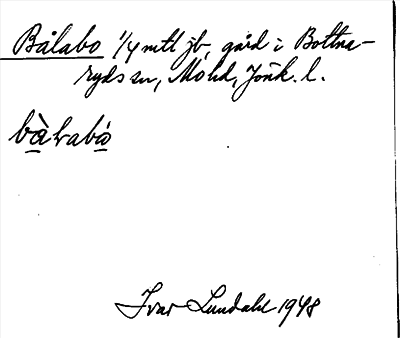 Bålabo 1/4 mtl jb, gård i Bottna-
ryds sn, Mo hd, Jönk. l.
bàlabò
Ivar Lundahl 1948